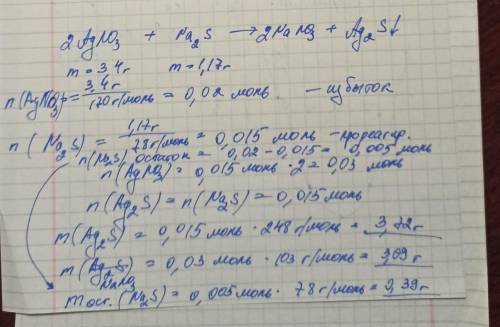 2AgNO₃ + Na₂S → 2NaNO₃ + Ag₂S↓
m = 3,4г m = 1,17г
n(AgNO₃) = 3,4г / 170 г/моль = 0,02 моль – избыток
n(Na₂S) = 1,17г / 78 г/моль = 0,015 моль – прореагир.
n(Na₂S) остаток = 0,02 - 0,015 = 0,005 моль
n(AgNO₃) = 0,015 моль · 2 = 0,03 моль
n(Ag₂S) = n(Na₂S) = 0,015 моль
m(Ag₂S) = 0,015 моль · 248 г/моль = 3,72г
m(Ag₂S) = 0,03 моль · 103 г/моль = 3,09г
NaNO₃
m ост. (Na₂S) = 0,005 моль · 78 г/моль = 0,39г